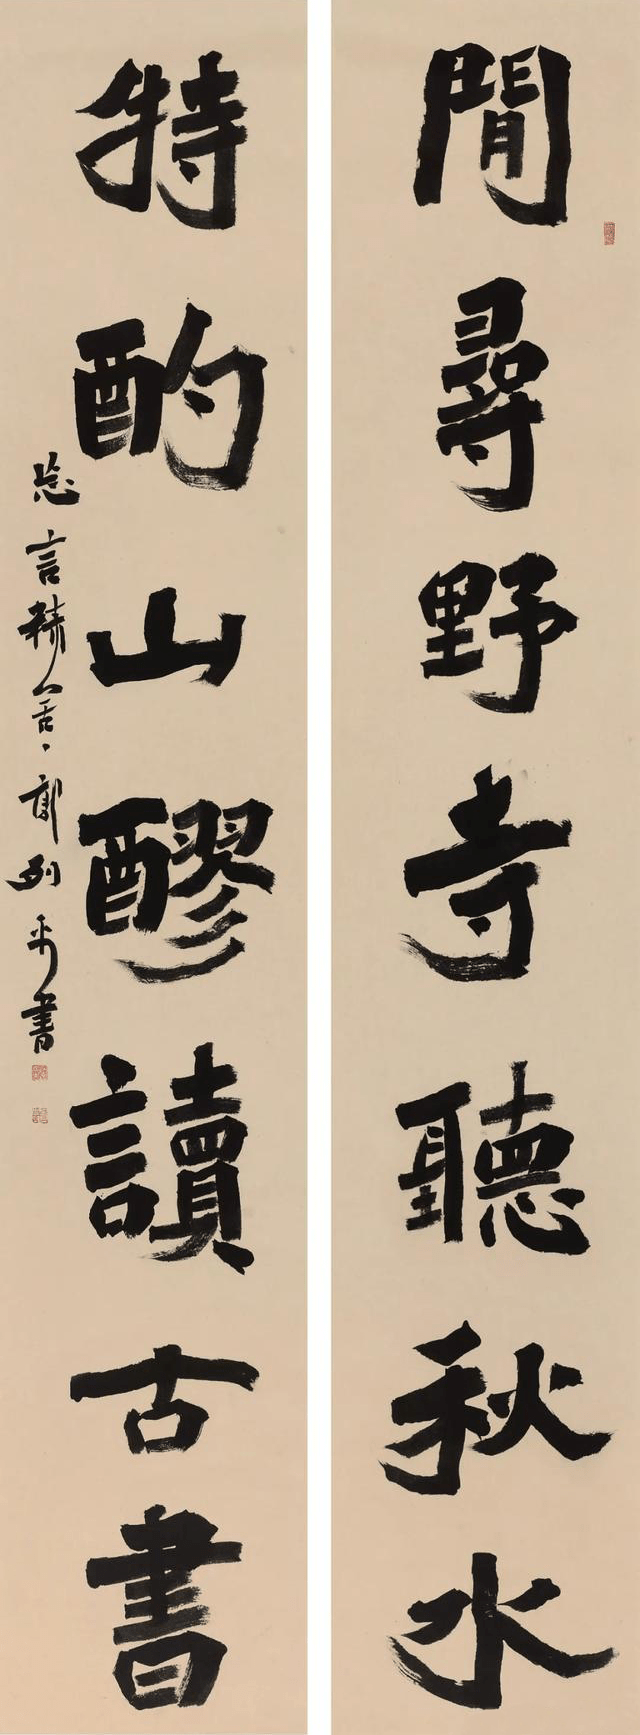 閒尋野寺聽秋水
特酌山醪讀古書
言精舍郭列平書